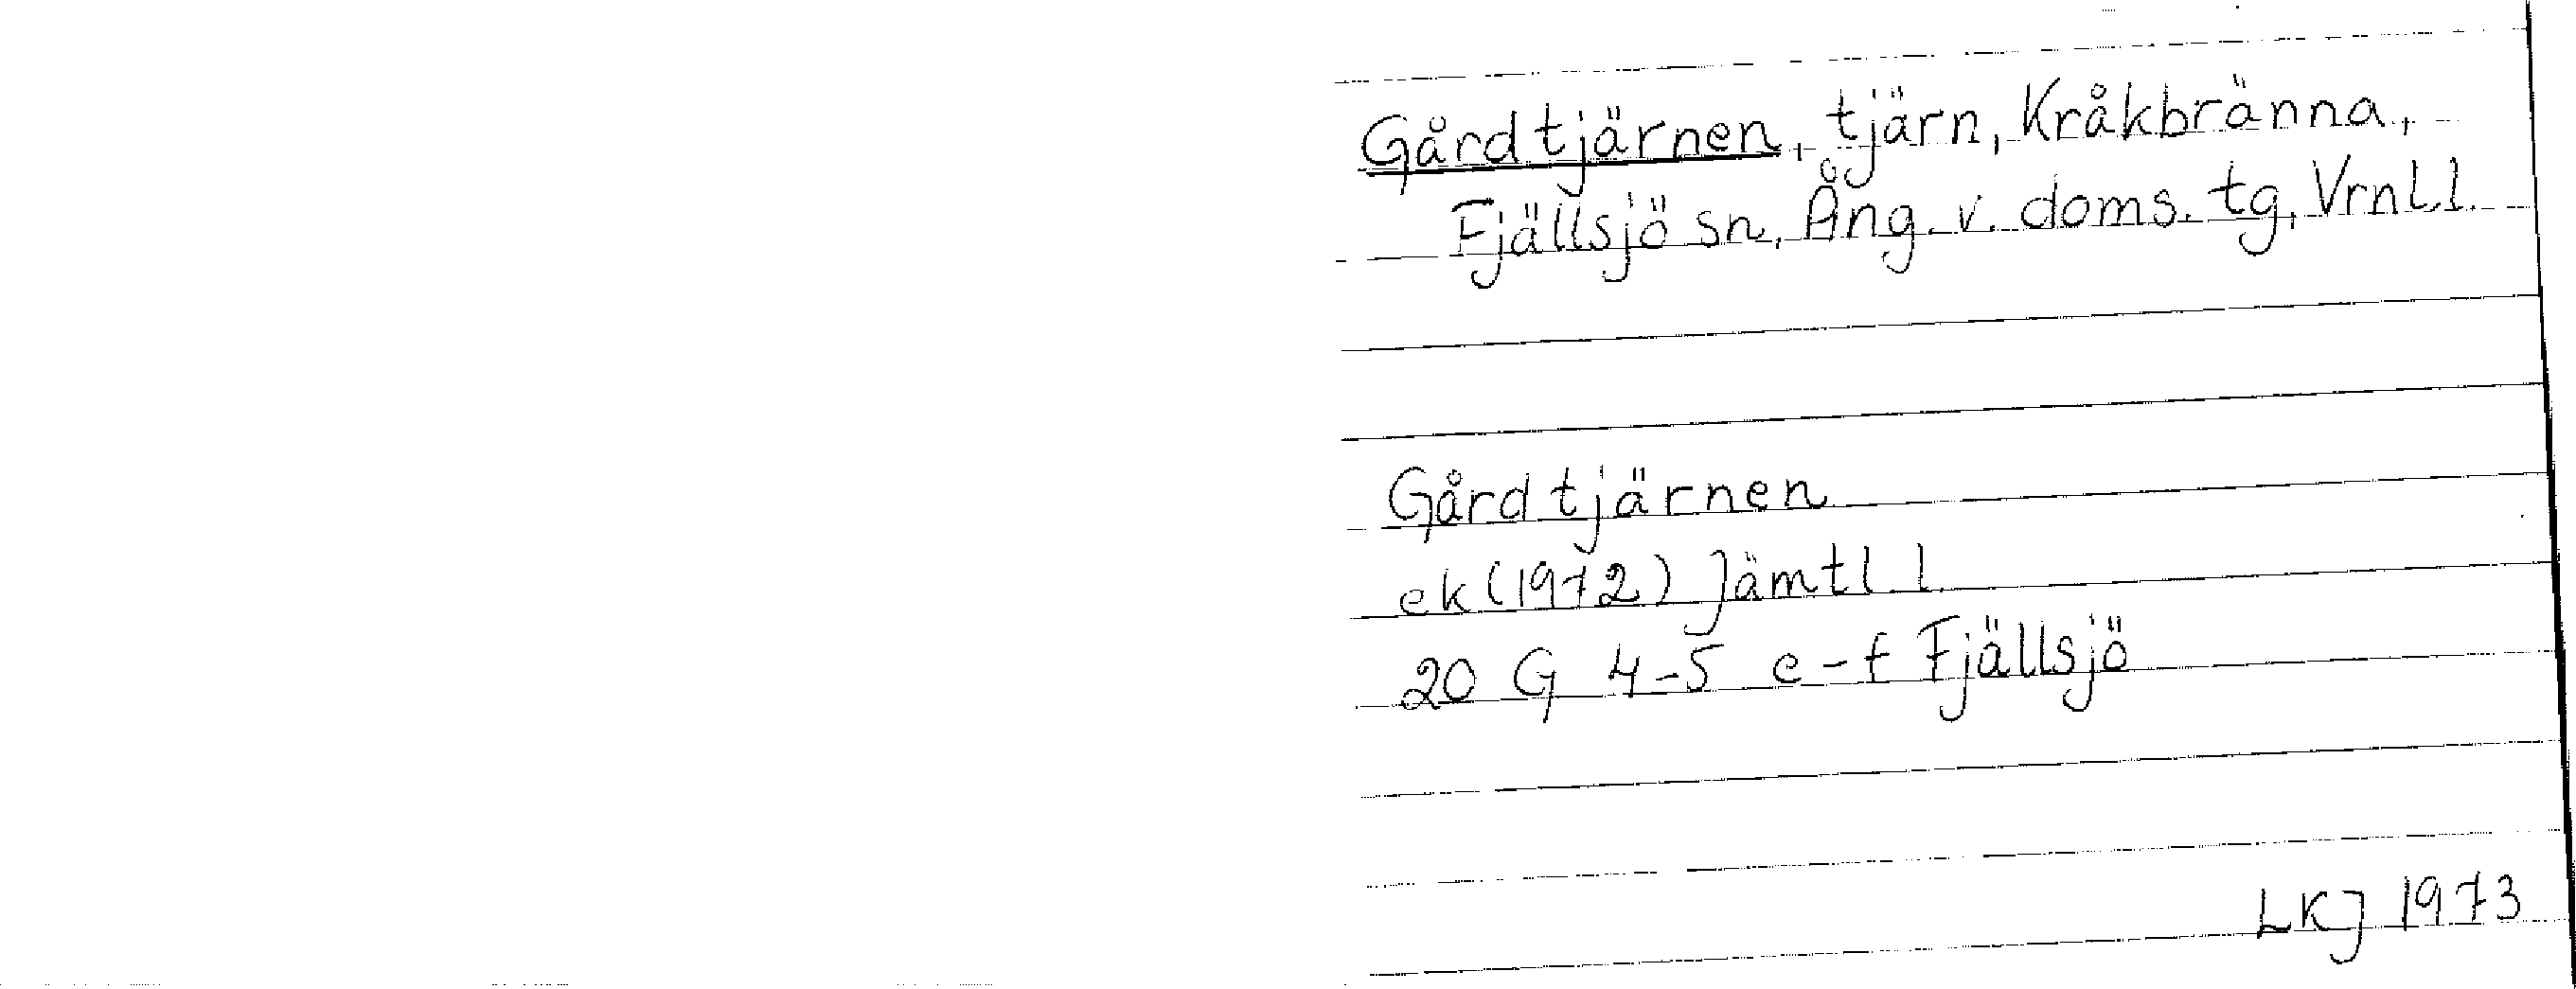 Gårdtjärnen, tjärn, Kråkbränna,
Fjällsjö sn, Ång. v. doms. tg, Vrnl l.
Gårdtjärnen
ek (1972) Jämtl l.
20 G 4-5 e-f Fjällsjö
LKJ 1973